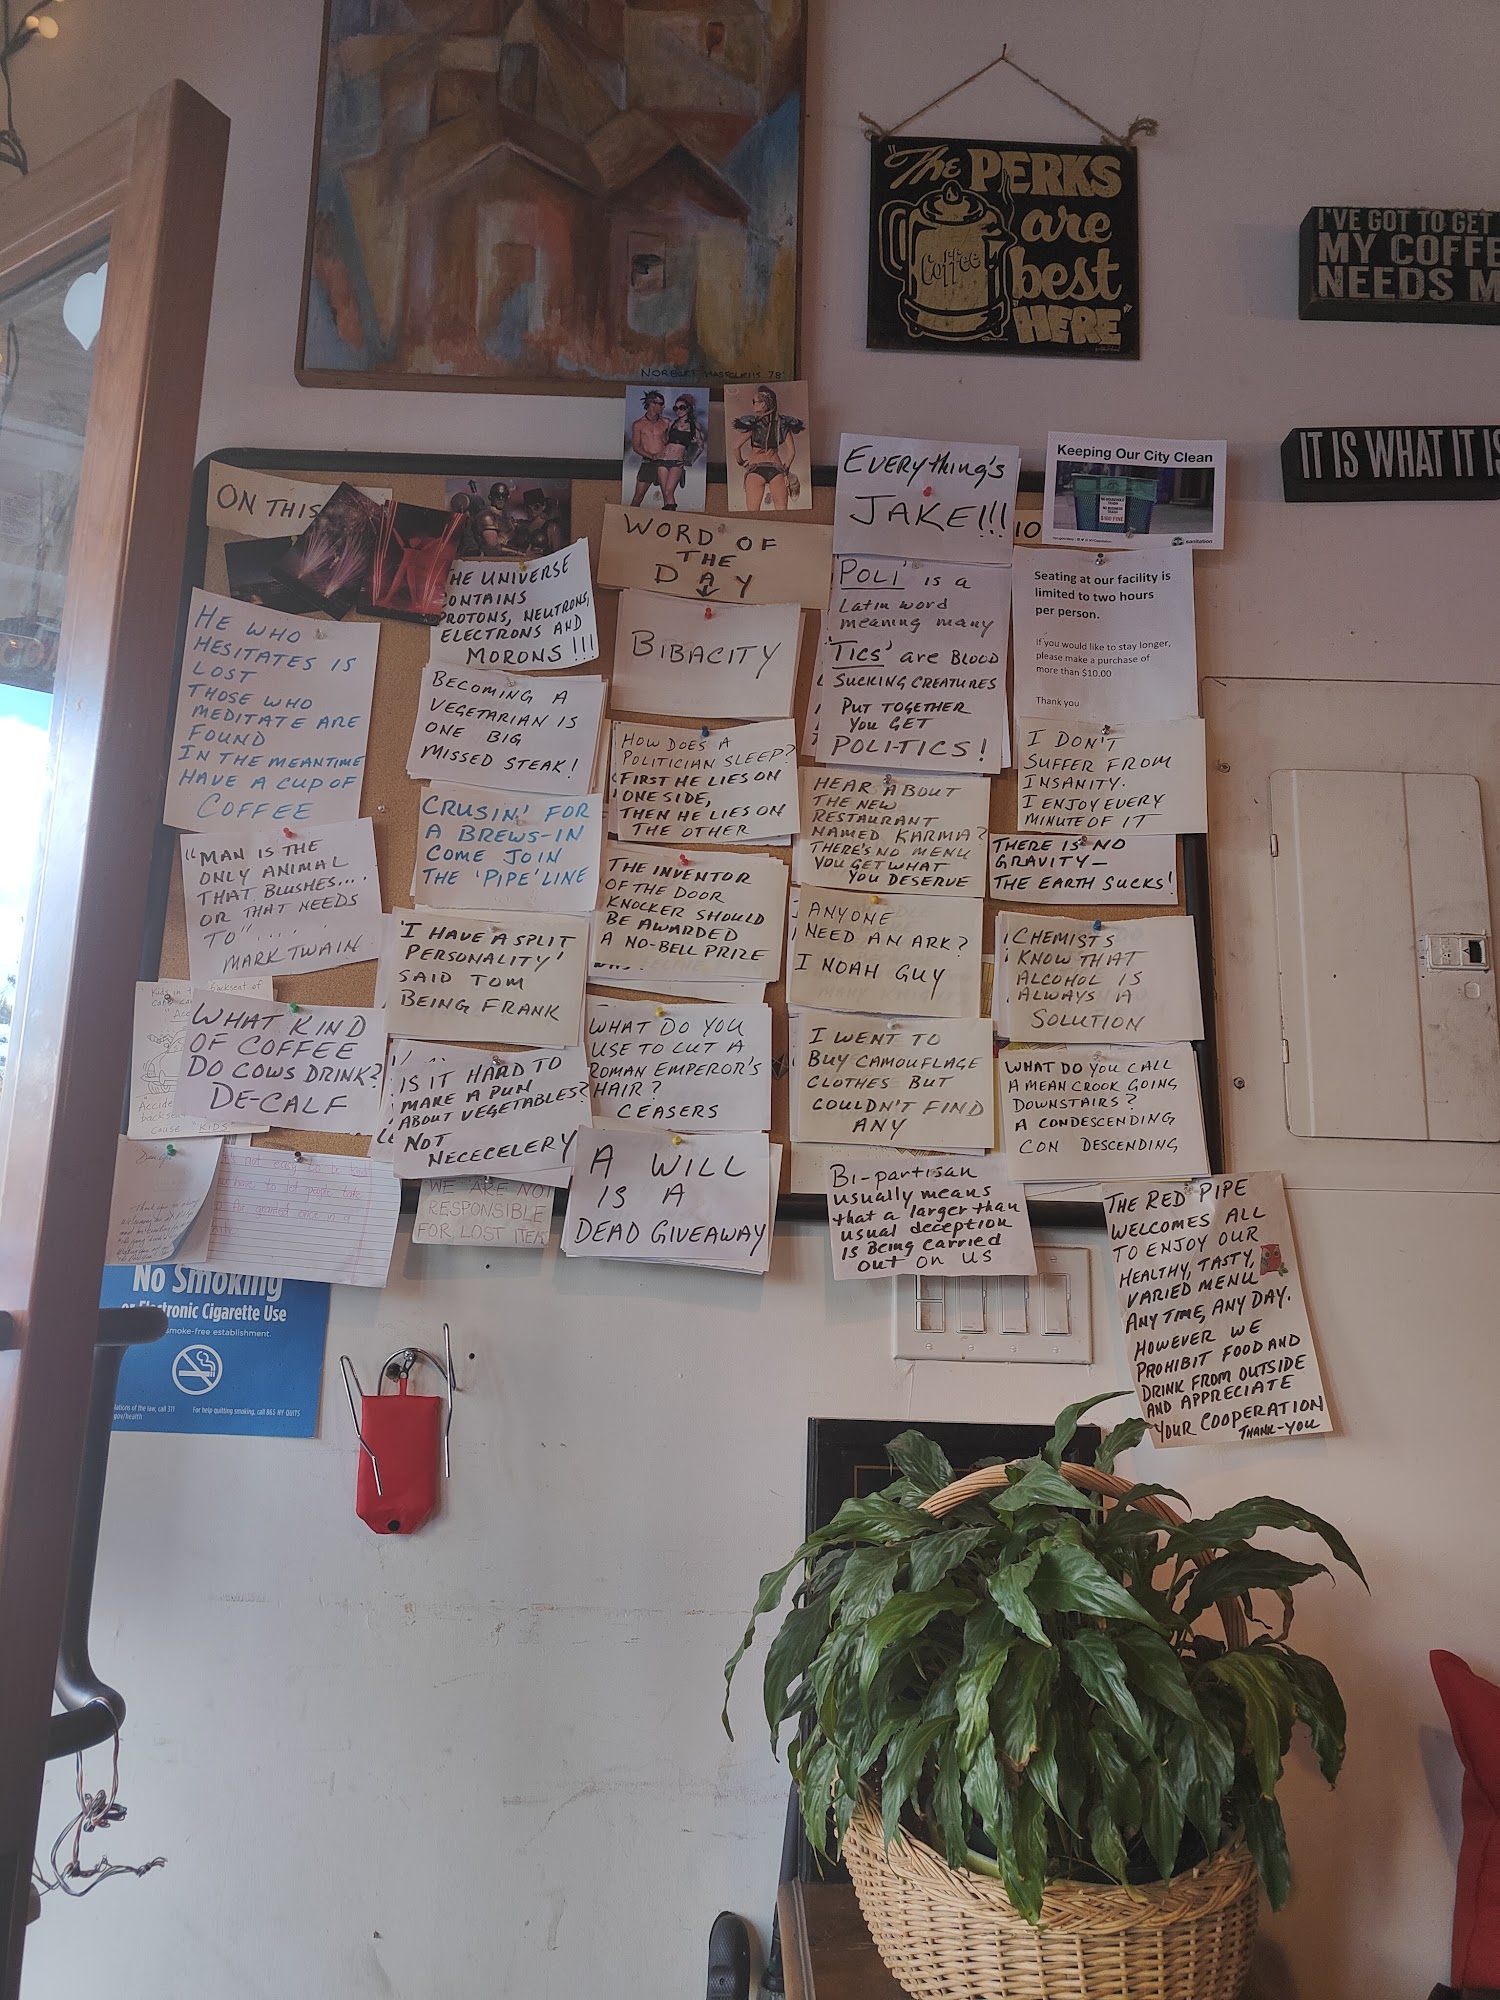 "The PERKS
are
best
HERE"
Coffee
I'VE GOT TO GET
MY COFFE
NEEDS M
IT IS WHAT IT IS
NORBERT 78'
ON THIS
WORD OF
THE
DAY
EVERYthing's
JAKE!!!
10
Keeping Our City Clean
$100 FINE
sanitation
THE UNIVERSE
CONTAINS
PROTONS, NEUTRONS,
ELECTRONS AND
MORONS!!!
BIBACITY
'POLI' is a
Latin word
meaning many
'TICS' are BLOOD
SUCKING CREATURES
PUT TOGETHER
YOU GET
POLITICS!
Seating at our facility is
limited to two hours
per person.
If you would like to stay longer,
please make a purchase of
more than $10.00
Thank you
HE WHO
HESITATES IS
LOST
THOSE WHO
MEDITATE ARE
FOUND
IN THE MEANTIME
HAVE A CUP OF
COFFEE
BECOMING A
VEGETARIAN IS
ONE BIG
MISSED STEAK!
HOW DOES A
POLITICIAN SLEEP?
FIRST HE LIES ON
ONE SIDE,
THEN HE LIES ON
THE OTHER
I DON'T
SUFFER FROM
INSANITY.
I ENJOY EVERY
MINUTE OF IT
CRUSIN' FOR
A BREWS-IN
COME JOIN
THE 'PIPE' LINE
HEAR ABOUT
THE NEW
RESTAURANT
NAMED KARMA?
THERE'S NO MENU
YOU GET WHAT
YOU DESERVE
THERE IS NO
GRAVITY—
THE EARTH SUCKS!
"MAN IS THE
ONLY ANIMAL
THAT BLUSHES....
OR THAT NEEDS
TO"....
MARK TWAIN
THE INVENTOR
OF THE DOOR
KNOCKER SHOULD
BE AWARDED
A NO-BELL PRIZE
'I HAVE A SPLIT
PERSONALITY'
SAID TOM
BEING FRANK
ANYONE
NEED AN ARK?
I NOAH GUY
CHEMISTS
KNOW THAT
ALCOHOL IS
ALWAYS A
SOLUTION
Kids in Backseat of
backse
Cause "KIDS"
WHAT KIND
OF COFFEE
DO COWS DRINK?
DE-CALF
WHAT DO YOU
USE TO CUT A
ROMAN EMPEROR'S
HAIR?
CEASERS
I WENT TO
BUY CAMOUFLAGE
CLOTHES BUT
COULDN'T FIND
ANY
WHAT DO YOU CALL
A MEAN CROOK GOING
DOWNSTAIRS?
A CONDESCENDING
CON DESCENDING
IS IT HARD TO
MAKE A PUN
ABOUT VEGETABLES?
NOT
NECECELERY
A WILL
IS A
DEAD GIVEAWAY
not easy to be kind
have to let people take
for granted once in a
WE ARE NOT
RESPONSIBLE
FOR LOST ITEM
BI-partisan
usually means
that a larger than
usual deception
is Being carried
out on US
THE RED PIPE
WELCOMES ALL
TO ENJOY OUR
HEALTHY, TASTY,
VARIED MENU
ANY TIME, ANY DAY.
HOWEVER WE
PROHIBIT FOOD AND
DRINK FROM OUTSIDE
AND APPRECIATE
YOUR COOPERATION
THANK-YOU
No Smoking
or Electronic Cigarette Use
smoke-free establishment.
lations of the law, call 311
gov/health
For help quitting smoking, call 866 NY QUITS